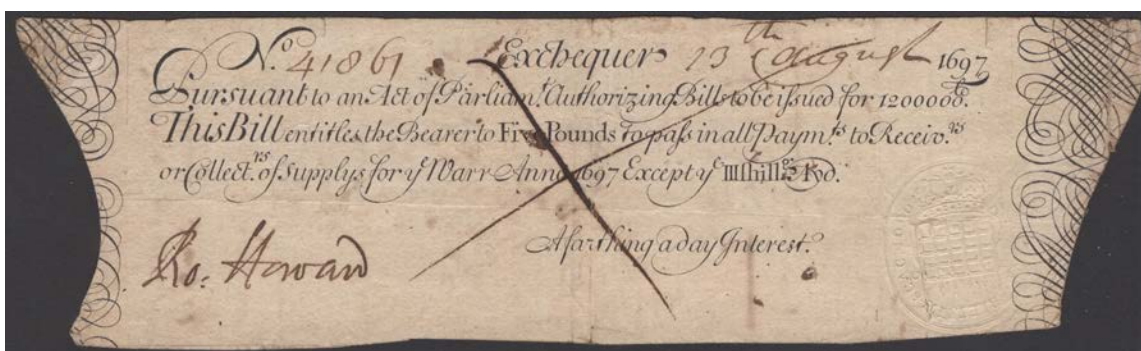 N.º 41861 Exchequer 23th August 1697
Pursuant to an Act of Parliam.t Authorizing Bills to be issued for 1200000li.
This Bill entitles the Bearer to Five Pounds to pass in all Paym.ts to Receiv.rs
or Collect.rs of Supplys for ye Warr Anno 1697 Except ye IIIshill.gs
A farthing a day Interest.
Ro: Howard